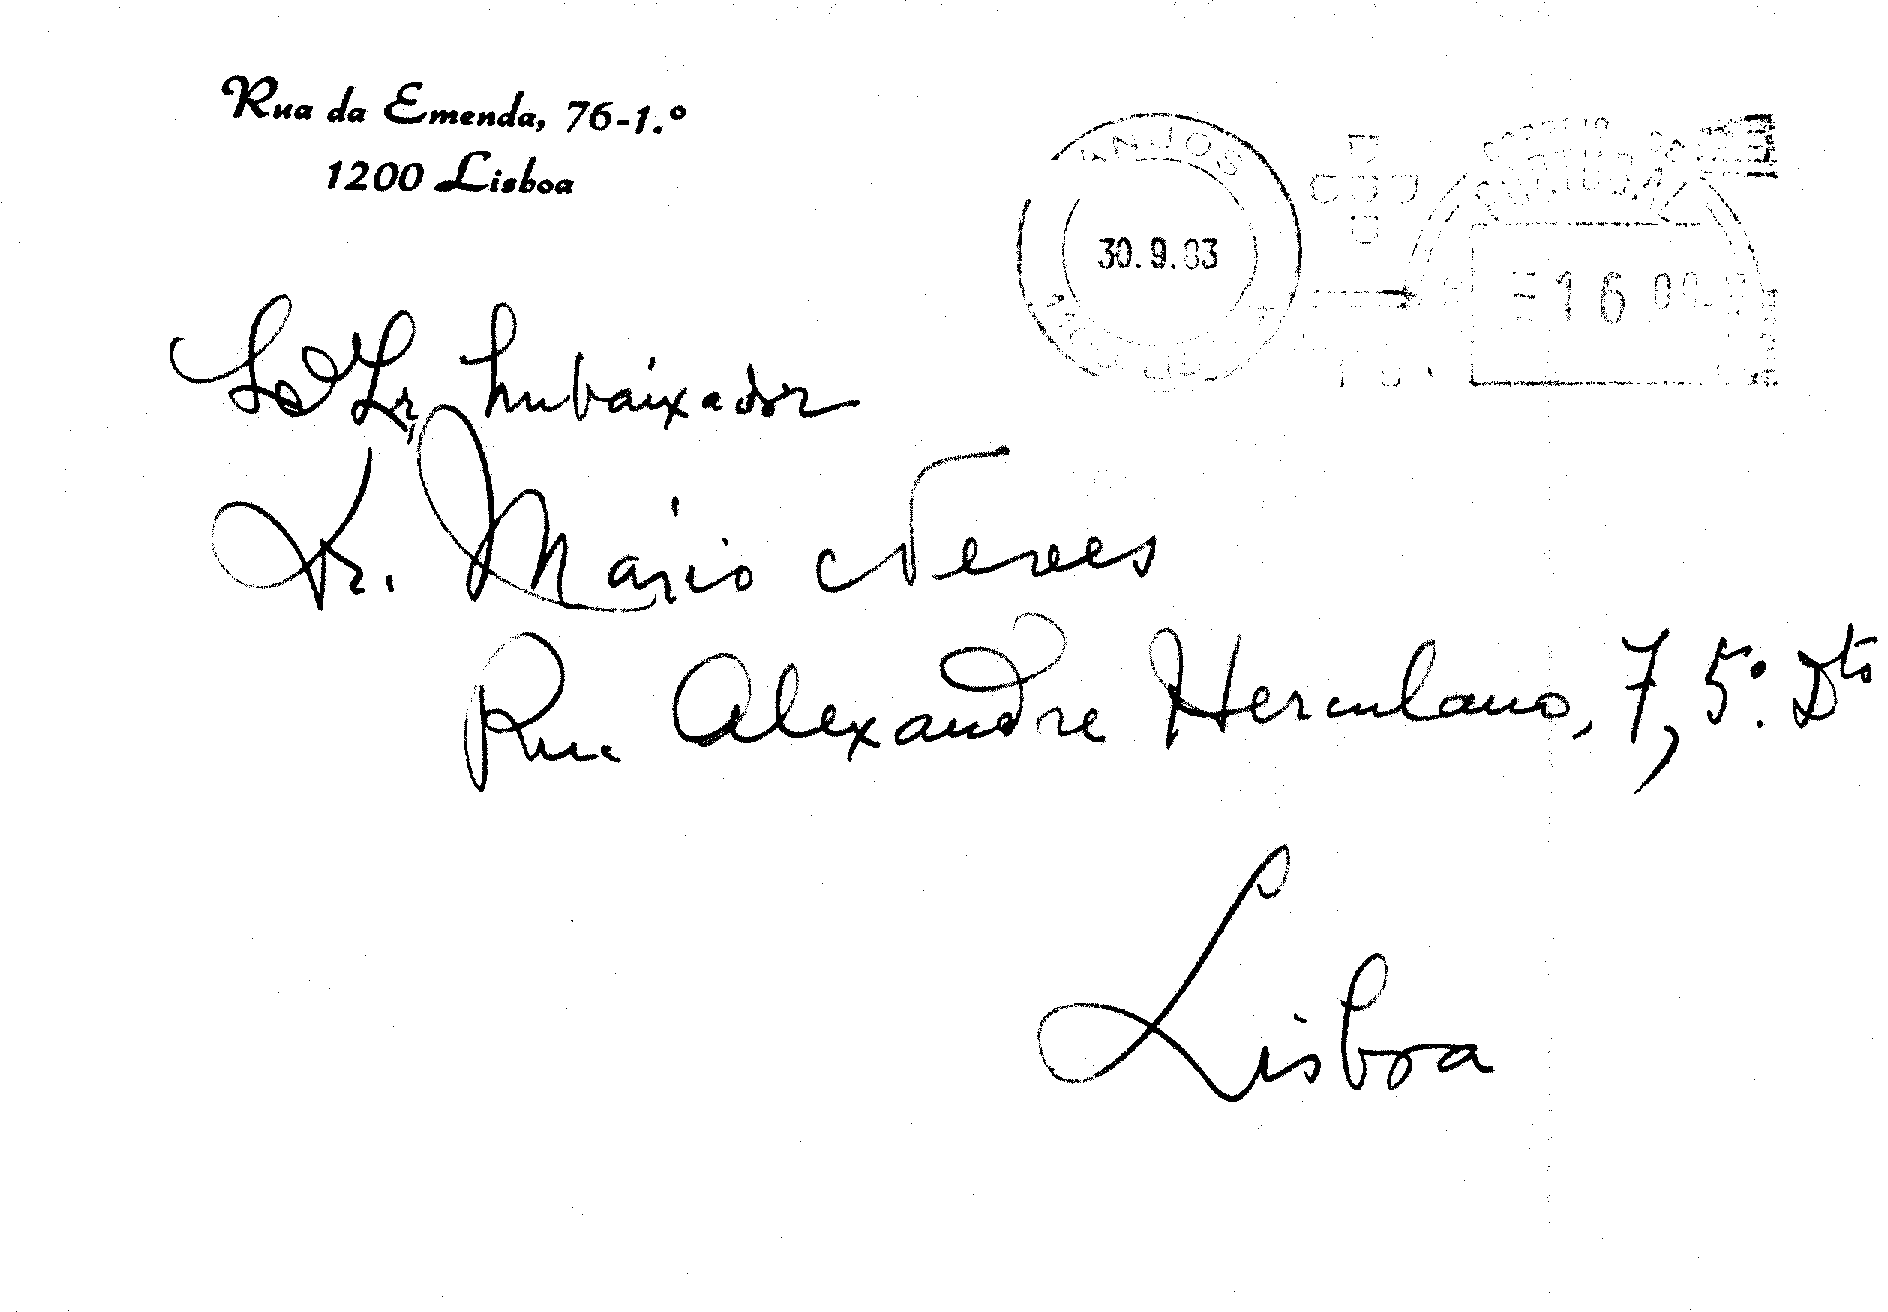 Rua da Emenda, 76-1.º
1200 Lisboa
ANJOS
30.9.83
PORTUGAL
16 00
Sr. Embaixador
Dr. Mário Neves
Rua Alexandre Herculano, 7, 5º. Dto
Lisboa